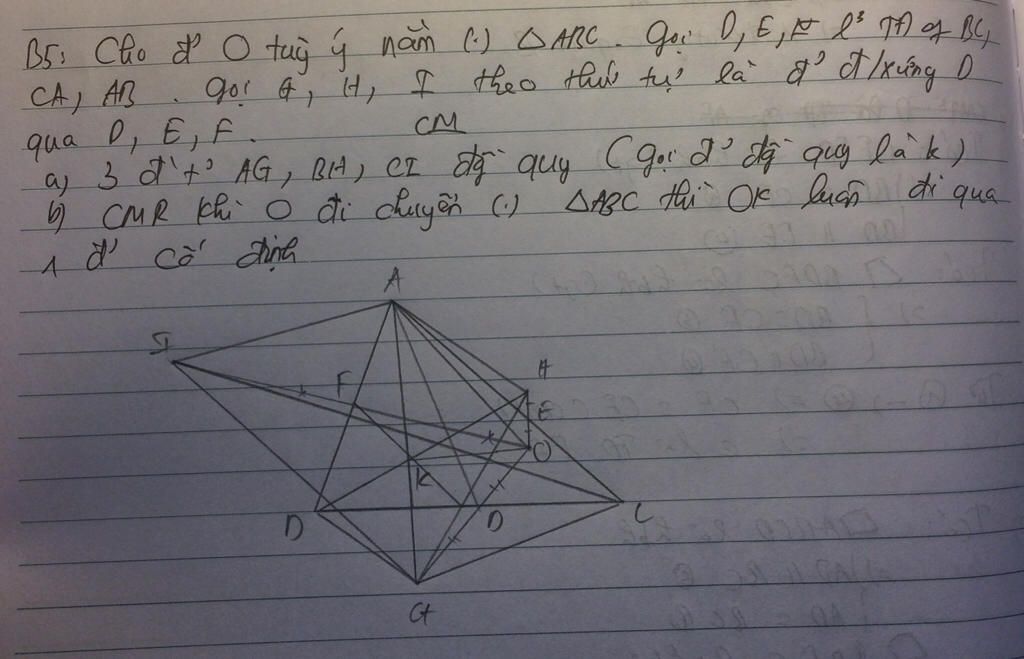 B5: Cho đ' O tuỳ ý nằm (.) △ABC. Gọi D, E, F l³ TĐ of BC,
CA, AB. Gọi G, H, I theo thứ tự là đ' đ/xứng O
qua D, E, F. CM
a, 3 đ' t' AG, BH, CI đg quy (gọi đ' đg quy là K)
b) CMR khi O di chuyển (.) △ABC thì OK luôn đi qua
1 đ' cố định
A
I
F
H
E
O
K
D
D
C
G